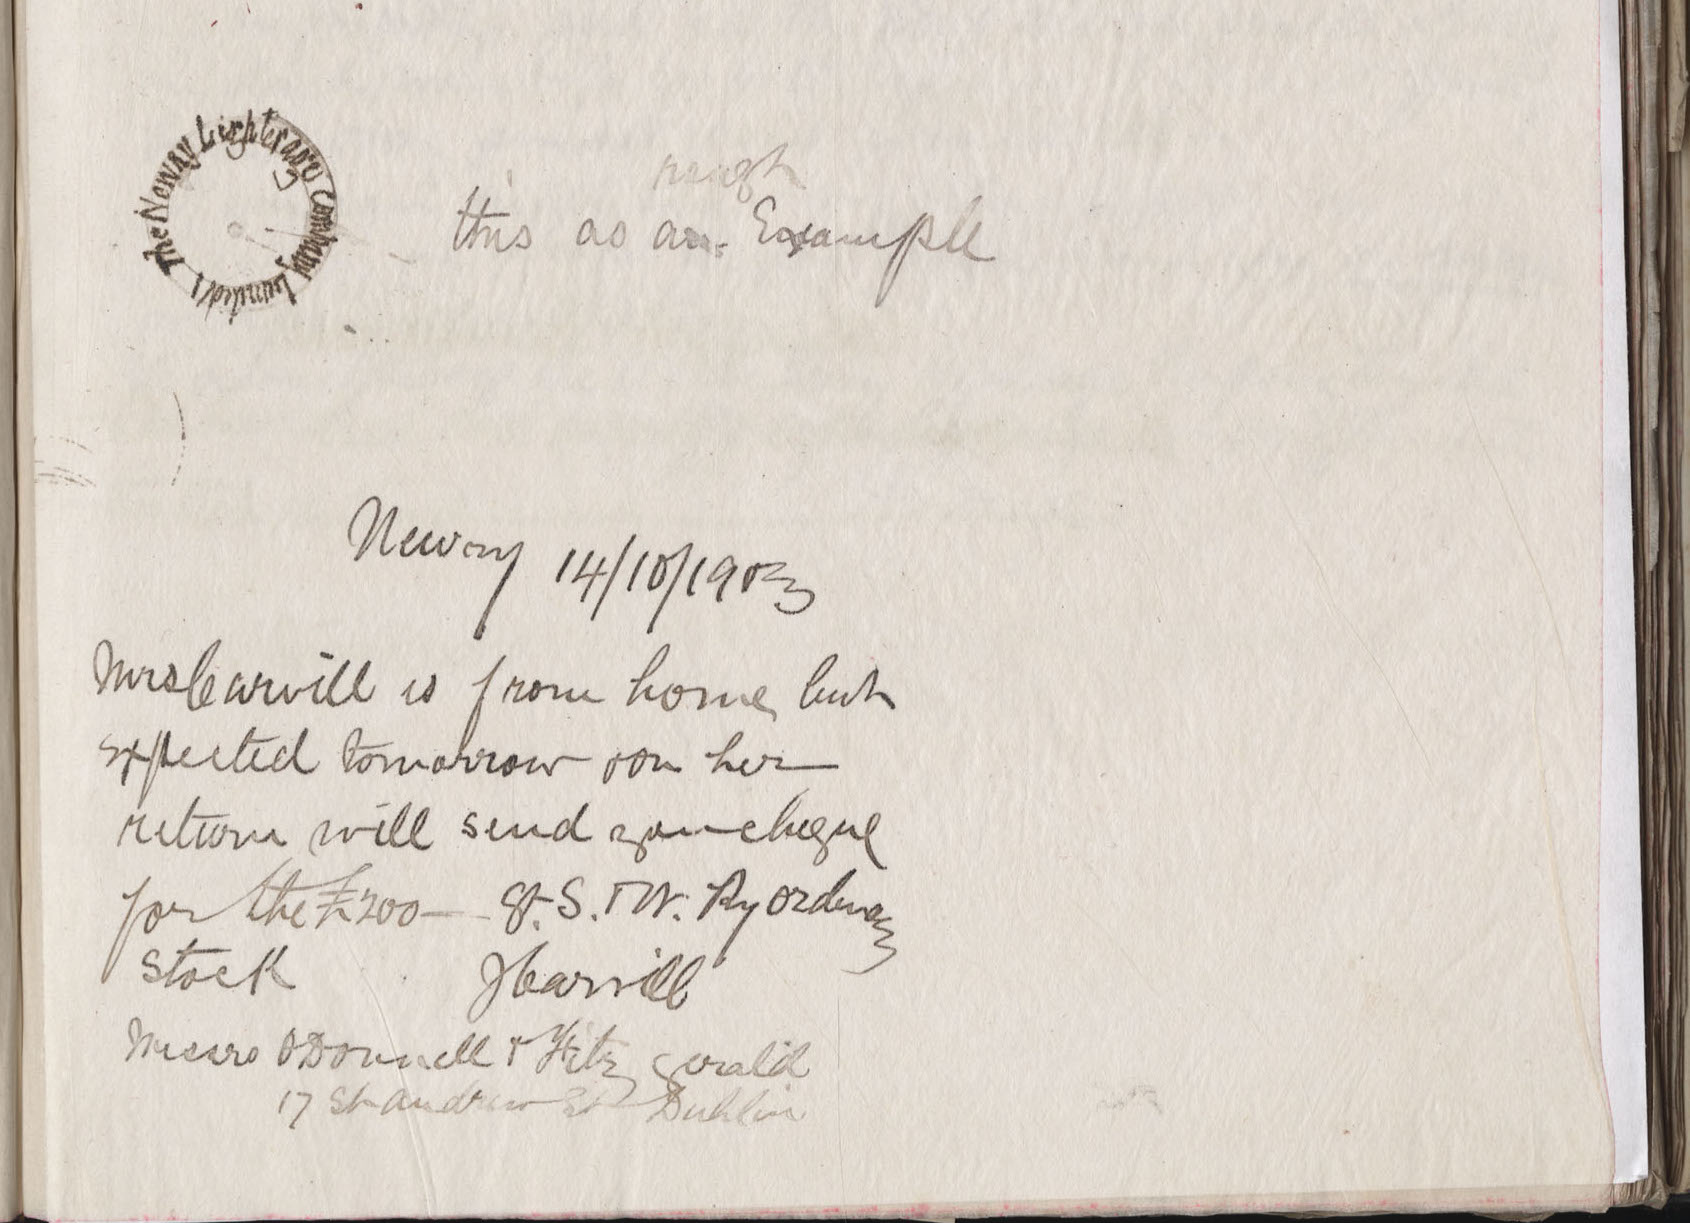 The Newry Lighterage Company Limited
rough
this as an Example
Newry 14/10/1903
Mrs Carvill is from home but
expected tomorrow & on her
return will send you cheque
for the £200 — Gt. S. & W. Ry Ordinary
Stock
JCarvill
Messrs O'Donnell & Fitz gerald
17 St Andrew St Dublin